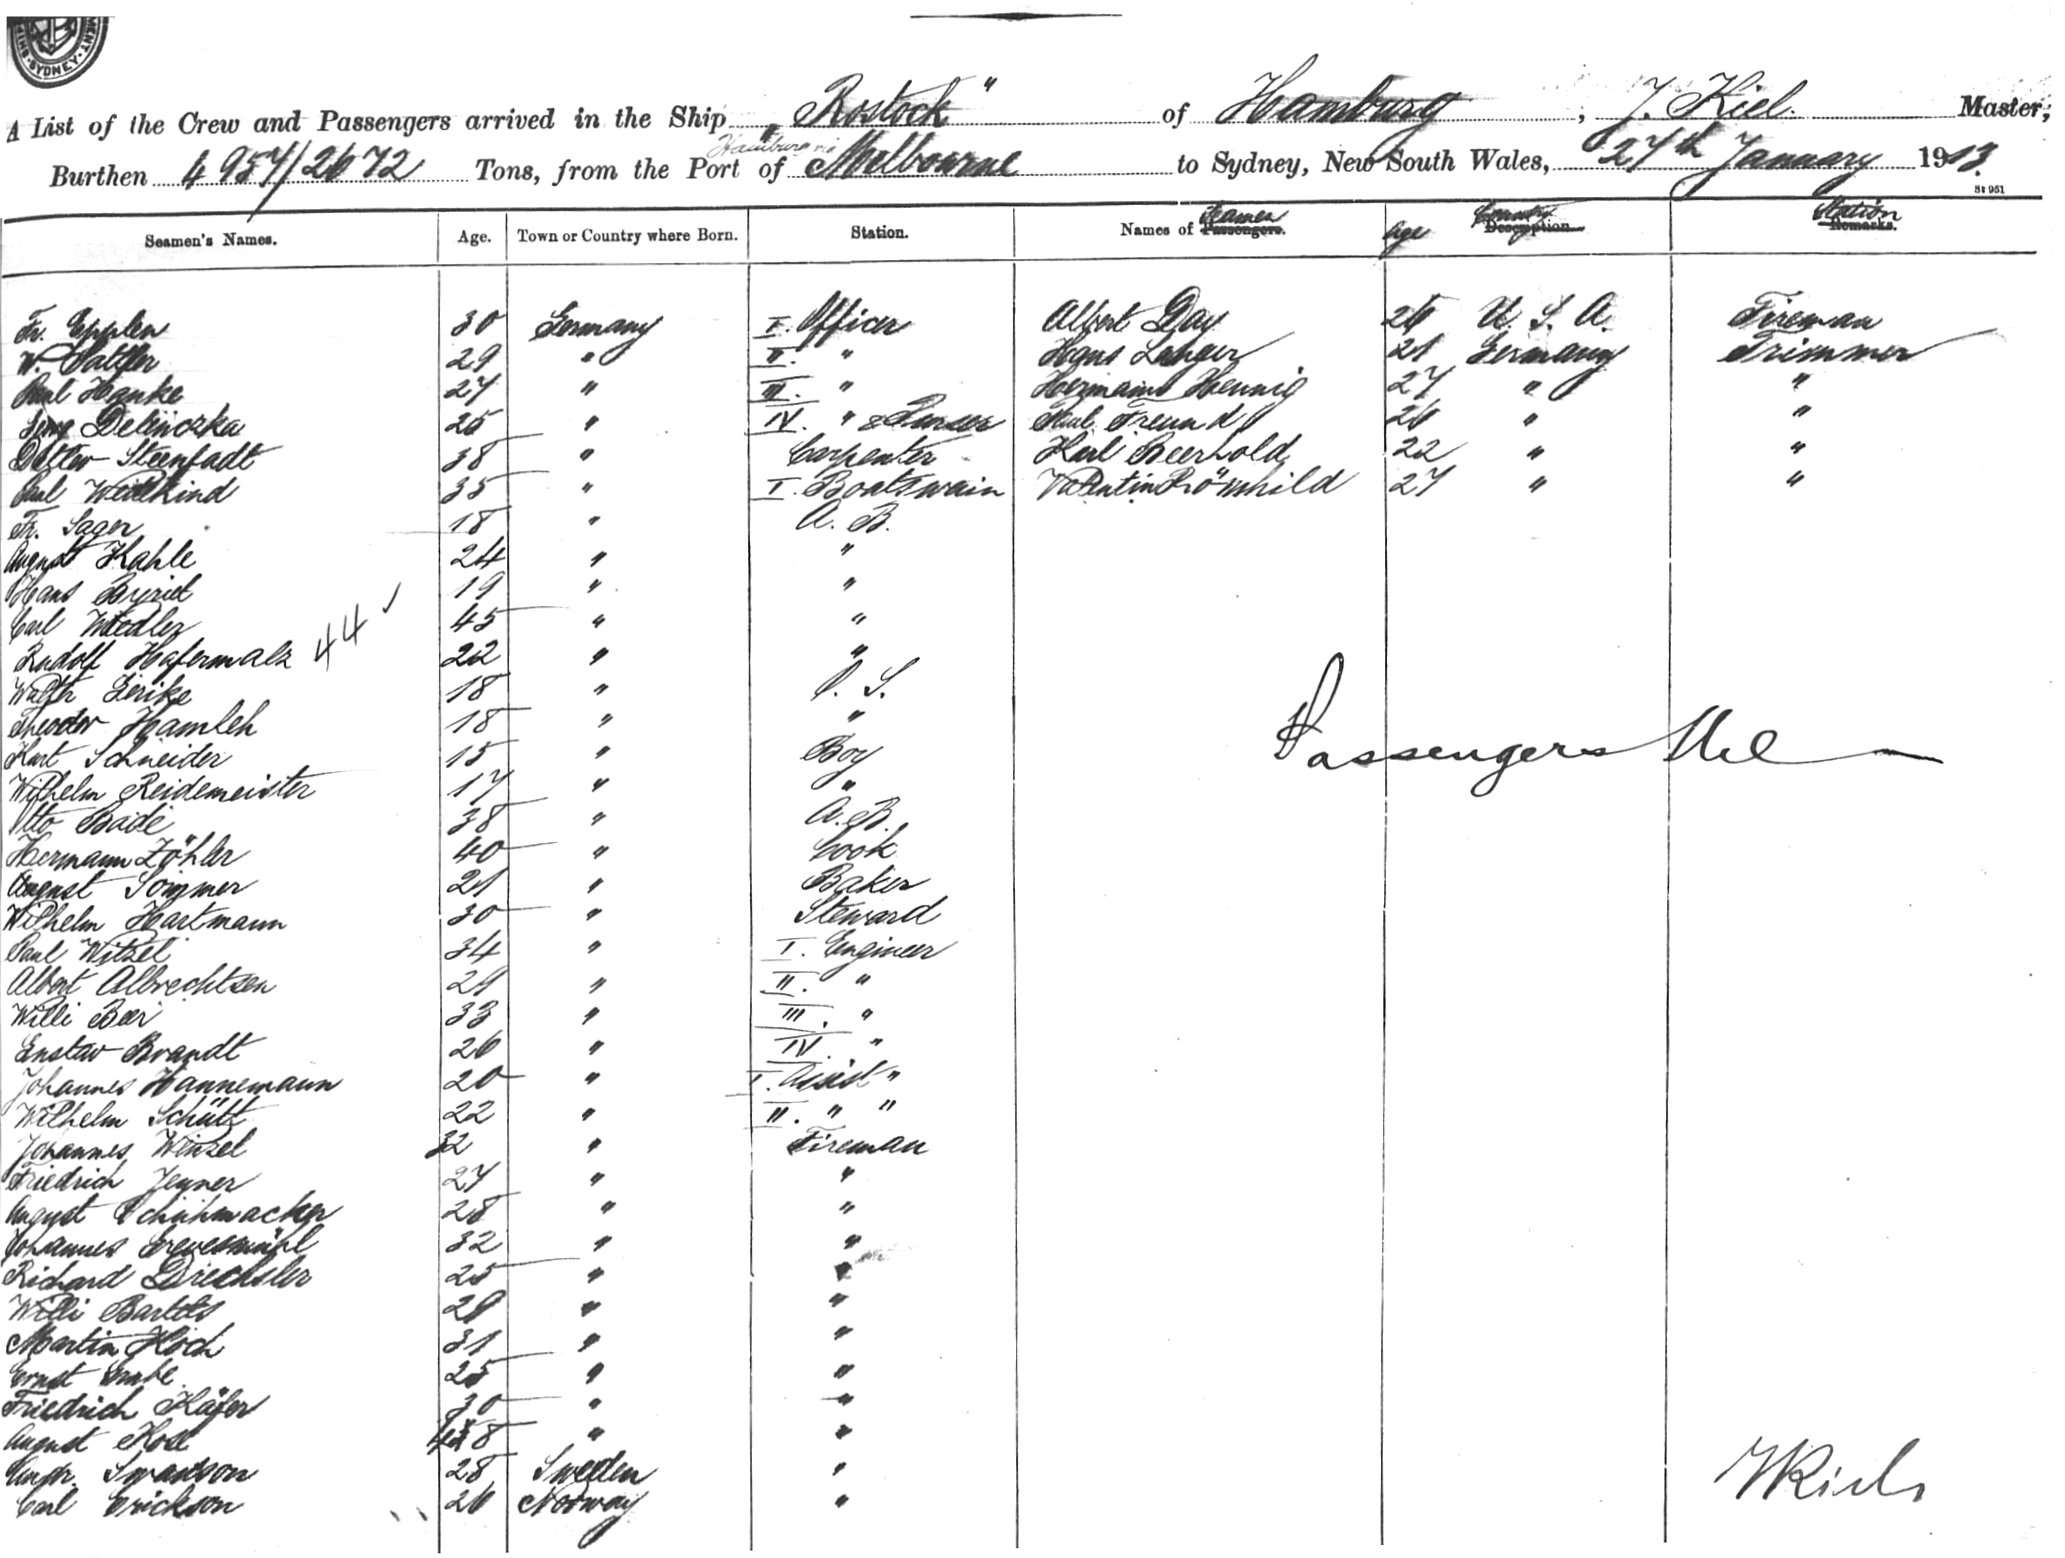 SYDNEY
A List of the Crew and Passengers arrived in the Ship "Rostock" of Hamburg, J. Kiel. Master,
Hamburg via
Burthen 4957/2672 Tons, from the Port of Melbourne to Sydney, New South Wales, 27th January 1913.
St 951
Seamen's Names. Age. Town or Country where Born. Station. Names of Passengers. Seamen Age Description. Country Remarks. Station
Fr. Epplen 30 Germany I. Officer Albert Day 26 U. S. A. Fireman
W. Sattler 29 " II. " Hans Langer 21 Germany Trimmer
Paul Hanke 27 " III. " Hermann Hennig 27 " "
Delinczka 25 " IV. " & Purser Paul Freund 26 " "
Detlev Steenfadt 38 " Carpenter Karl Beerhold 22 " "
Paul Weidkind 35 " I. Boatswain Valentin Römhild 27 " "
Fr. Sager 18 " A. B.
August Kahle 24 " "
Hans 19 " "
Carl Wiedler 45 " "
Rudolf Hafermalz 44 ✓ 22 " "
Walth Gerike 18 " O. S.
Theodor Hamleh 18 " "
Kurt Schneider 15 " Boy
Passengers Nil
Wilhelm Reidemeister 17 " "
Otto Bade 38 " A. B.
Hermann Zöhler 40 " Cook
August Sommer 21 " Baker
Wilhelm Hartmann 30 " Steward
Paul Witzel 34 " I. Engineer
Albert Albrechtsen 29 " II. "
Willi Beer 33 " III. "
Gustav Brandt 26 " IV. "
Johannes Hannemann 20 " I. Assist "
Wilhelm Schütt 22 " II. " "
Johannes Winzel 32 " Fireman
Friedrich Jegner 27 " "
August Schuhmacher 28 " "
Johannes Grevesmühl 32 " "
Richard Drechsler 25 " "
Willi Bartels 29 " "
Martin Koch 31 " "
Ernst 25 " "
Friedrich Käfer 30 " "
August Kose 48 " "
Andr. Swanson 28 Sweden "
Carl Erickson 26 Norway "
J Kiel